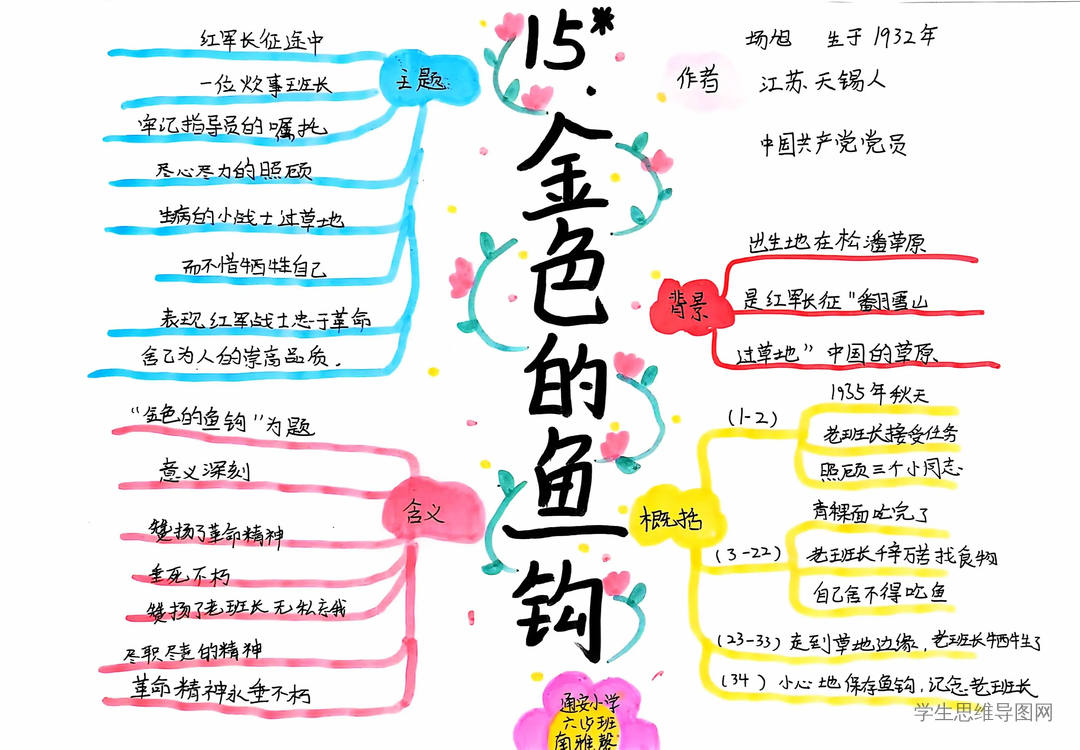 15*.金色的鱼钩
主题
红军长征途中
一位炊事班长
牢记指导员的嘱托
尽心尽力的照顾
生病的小战士过草地
而不惜牺牲自己
表现红军战士忠于革命
舍己为人的崇高品质.
含义
“金色的鱼钩”为题
意义深刻
赞扬了革命精神
垂死不朽
赞扬了老班长无私忘我
尽职尽责的精神
革命精神永垂不朽
作者
杨旭 生于1932年
江苏无锡人
中国共产党党员
背景
出生地在松潘草原
是红军长征“翻雪山
过草地”中国的草原
概括
(1-2)
1935年秋天
老班长接受任务
照顾三个小同志
(3-22)
青稞面吃完了
老班长千辛万苦找食物
自己舍不得吃鱼
(23-33)走到草地边缘,老班长牺牲了
(34)小心地保存鱼钩,记念老班长
通安小学
六(5)班
南雅馨
学生思维导图网